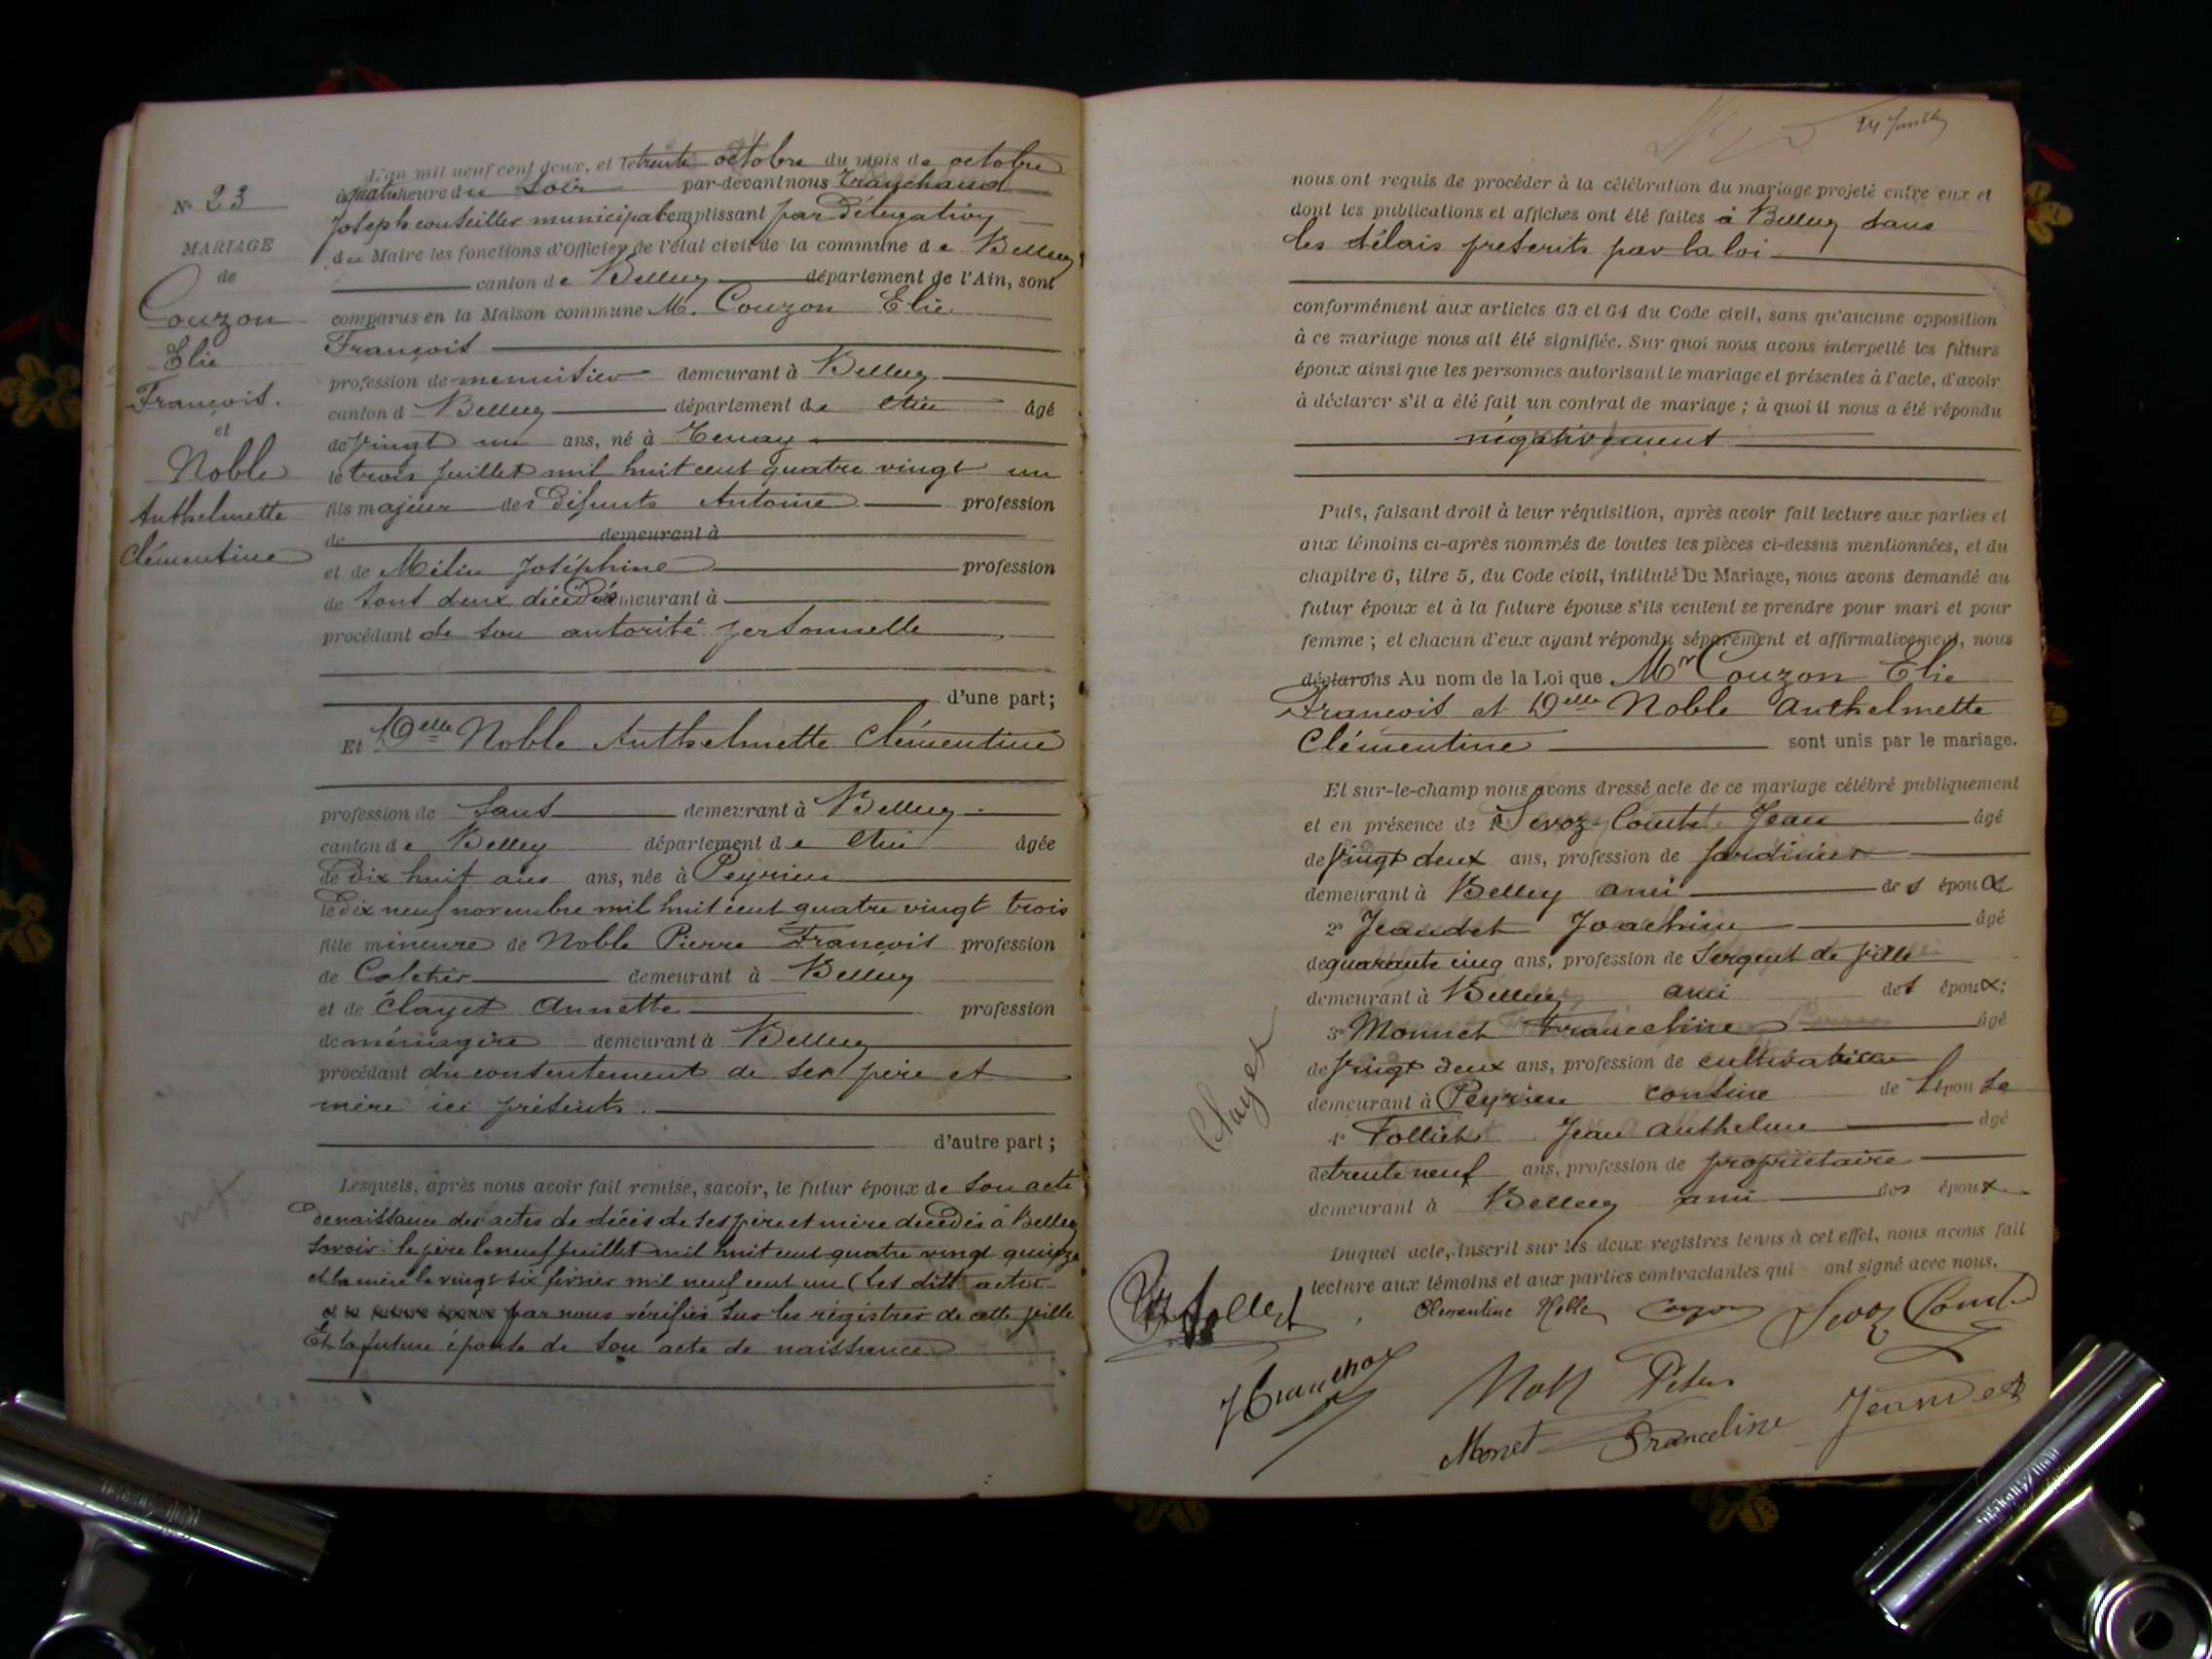 L'an mil neuf cent deux, et le trente octobre du mois de octobre
à quatre heure du soir par-devant nous Tranchand
Joseph conseiller municipal remplissant par délégation
du Maire les fonctions d'Officier de l'état civil de la commune de Belley
canton de Belley département de l'Ain, sont
comparus en la Maison commune M. Couzon Elie
François
profession de menuisier demeurant à Belley
canton d Belley département de Ain âgé
de vingt un ans, né à Tenay
le trois juillet mil huit cent quatre vingt un
fils majeur des défunts Antoine profession
de demeurant à
et de Mélin Joséphine profession
de tout deux décédés demeurant à
procédant de son autorité personnelle
d'une part;
Et Delle Noble Anthelmette Clémentine
profession de Sans demeurant à Belley
canton de Belley département de Ain âgée
de dix huit ans ans, née à Peyrieu
le dix neuf novembre mil huit cent quatre vingt trois
fille mineure de Noble Pierre François profession
de demeurant à Belley
et de Clayet Annette profession
de ménagère demeurant à Belley
procédant du consentement de ses père et
mère ici présents.
d'autre part;
Lesquels, après nous avoir fait remise, savoir, le futur époux de son acte
de naissance des actes de décès de ses père et mère décédés à Belley
savoir: le père le neuf juillet mil huit cent quatre vingt quinze
et la mère le vingt six février mil neuf cent un (les dits actes
par nous vérifiés sur les registres de cette ville
Et la future épouse de son acte de naissance
N° 23
MARIAGE
de
Couzon
Elie
François.
et
Noble
Anthelmette
Clémentine
nous ont requis de procéder à la célébration du mariage projeté entre eux et
dont les publications et affiches ont été faites à Belley dans
les délais prescrits par la loi
conformément aux articles 63 et 64 du Code civil, sans qu'aucune opposition
à ce mariage nous ait été signifiée. Sur quoi nous avons interpellé les futurs
époux ainsi que les personnes autorisant le mariage et présentes à l'acte, d'avoir
à déclarer s'il a été fait un contrat de mariage; à quoi il nous a été répondu
négativement
Puis, faisant droit à leur réquisition, après avoir fait lecture aux parties et
aux témoins ci-après nommés de toutes les pièces ci-dessus mentionnées, et du
chapitre 6, titre 5, du Code civil, intitulé Du Mariage, nous avons demandé au
futur époux et à la future épouse s'ils veulent se prendre pour mari et pour
femme; et chacun d'eux ayant répondu séparément et affirmativement, nous
déclarons Au nom de la Loi que Mr Couzon Elie
François et Delle Noble Anthelmette
Clémentine sont unis par le mariage.
Et sur-le-champ nous avons dressé acte de ce mariage célébré publiquement
et en présence de 1° Sevoz Comte Jean âgé
de vingt deux ans, profession de jardinier
demeurant à Belley ami des époux
2° Jeandet Joachim âgé
de quarante cinq ans, profession de Sergent de ville
demeurant à Belley ami des époux;
3° Monnet Franceline âgé
de vingt deux ans, profession de cultivatrice
demeurant à Peyrieu cousine de l'épouse
4° Folliet Jean Anthelme âgé
de trente neuf ans, profession de propriétaire
demeurant à Belley ami des époux
Duquel acte, inscrit sur les deux registres tenus à cet effet, nous avons fait
lecture aux témoins et aux parties contractantes qui ont signé avec nous.
Clayet
Clementine Noble Couzon Sevoz Comte
Folliet
Monet Franceline Jeandet